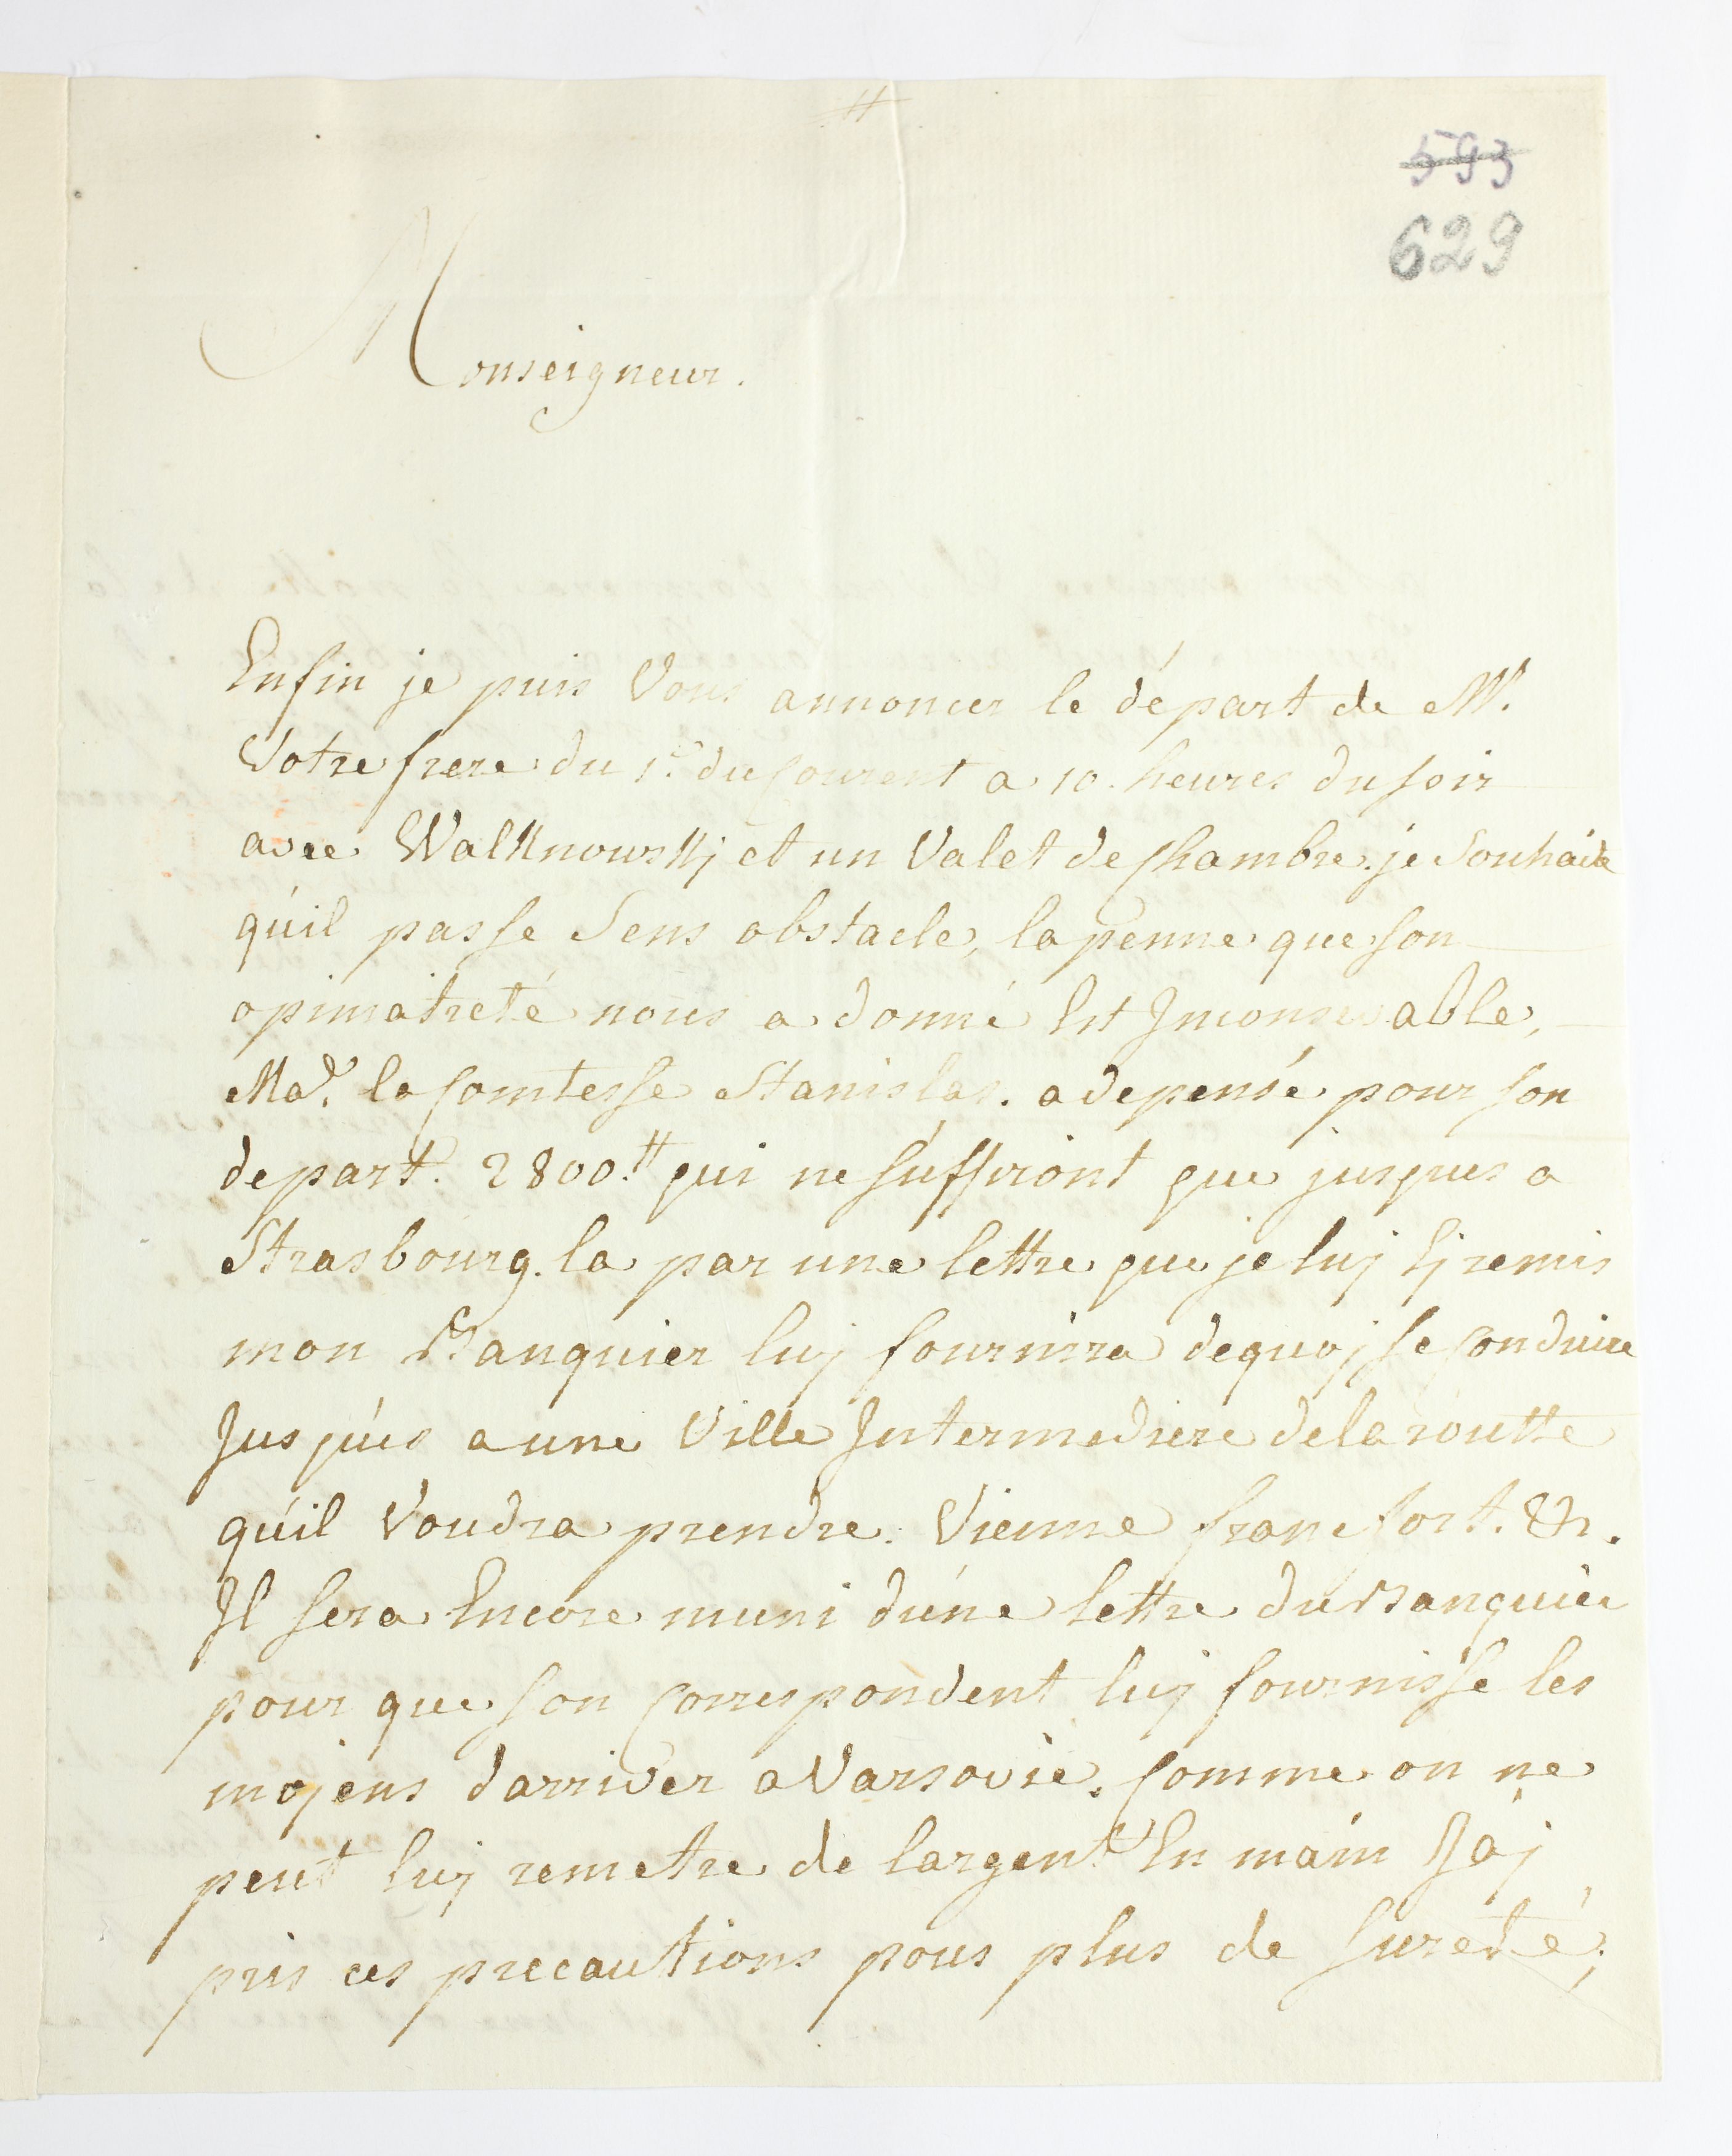 593
629
Monseigneur.
Enfin je puis Vous annoncer le départ de Mr.
Votre frere du 1.r du Courent a 10. heures du soir
avec Walknowskj et un Valet de Chambre. je Souhaite
qúil passe Sens obstacle, la penne que son
opiniatreté nous a donné Est Inconsevable,
Made. la Comtesse Stanislas. a depensé pour son
depart. 2800.tt qui ne suffiront que jusques a
Strasbourg. la par une lettre que je luj Ej remis
mon Banquier luj fournira dequoj se Conduire
Jusques a une Ville Intermediere de la routte
qúil Voudra prendre. Vienne francfort. &c.
Il sera Encore muni dúne lettre du Banquier
pour que son Correspondent luj fournisse les
mojens darriver a Varsovie. Comme on ne
peut luj remetre de largent En main Jáj
pris ces precautions pous plus de sureté;